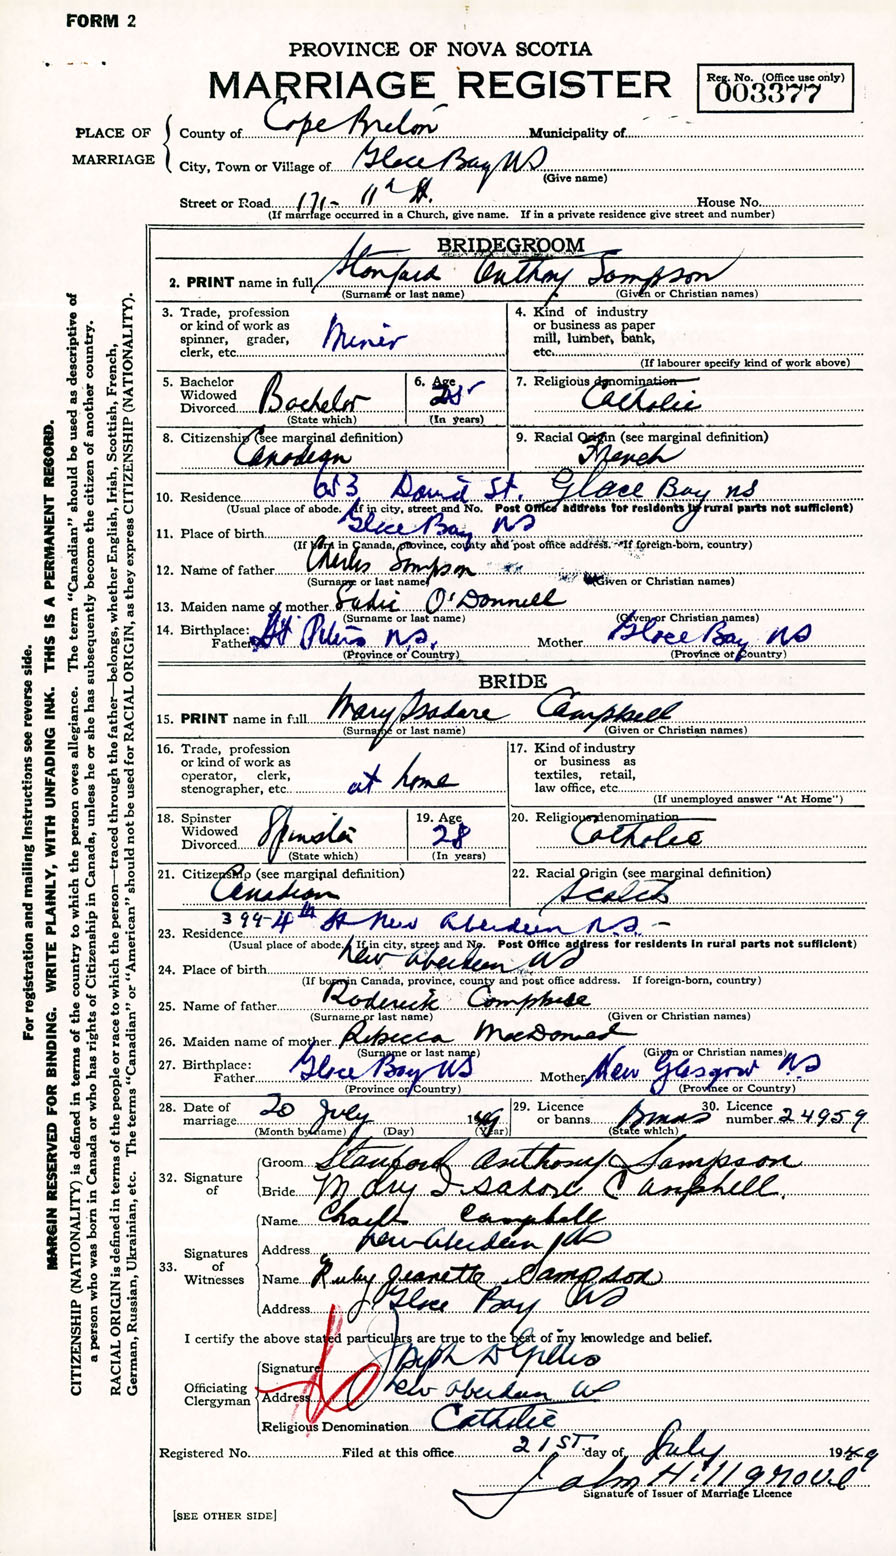 FORM 2
PROVINCE OF NOVA SCOTIA
MARRIAGE REGISTER
Reg. No. (Office use only)
003377
PLACE OF MARRIAGE
County of Cape Breton Municipality of
City, Town or Village of Glace Bay NS
(Give name)
Street or Road 171- 11th St. House No.
(If marriage occurred in a Church, give name. If in a private residence give street and number)
BRIDEGROOM
2. PRINT name in full Stanford Anthony Sampson
(Surname or last name) (Given or Christian names)
3. Trade, profession or kind of work as spinner, grader, clerk, etc. Miner
4. Kind of industry or business as paper mill, lumber, bank, etc.
(If labourer specify kind of work above)
5. Bachelor Widowed Divorced Bachelor
(State which)
6. Age
(In years)
7. Religious denomination Catholic
8. Citizenship (see marginal definition) Canadian
9. Racial Origin (see marginal definition) French
10. Residence 653 David St. Glace Bay NS
(Usual place of abode. If in city, street and No. Post Office address for residents in rural parts not sufficient)
11. Place of birth Glace Bay NS
(If born in Canada, province, county and post office address. If foreign-born, country)
12. Name of father Charles Sampson
(Surname or last name) (Given or Christian names)
13. Maiden name of mother Sadie O'Donnell
(Surname or last name) (Given or Christian names)
14. Birthplace: Father St Peters N.S. Mother Glace Bay NS
(Province or Country) (Province or Country)
BRIDE
15. PRINT name in full Mary Isadore Campbell
(Surname or last name) (Given or Christian names)
16. Trade, profession or kind of work as operator, clerk, stenographer, etc. at home
17. Kind of industry or business as textiles, retail, law office, etc.
(If unemployed answer "At Home")
18. Spinster Widowed Divorced Spinster
(State which)
19. Age 28
(In years)
20. Religious denomination Catholic
21. Citizenship (see marginal definition) Canadian
22. Racial Origin (see marginal definition) Scotch
23. Residence 399-4th St New Aberdeen N.S.
(Usual place of abode. If in city, street and No. Post Office address for residents in rural parts not sufficient)
24. Place of birth New Aberdeen NS
(If born in Canada, province, county and post office address. If foreign-born, country)
25. Name of father Roderick Campbell
(Surname or last name) (Given or Christian names)
26. Maiden name of mother Rebecca MacDonald
(Surname or last name) (Given or Christian names)
27. Birthplace: Father Glace Bay NS Mother New Glasgow N.S
(Province or Country) (Province or Country)
28. Date of marriage 20 July 1949
(Month by name) (Day) (Year)
29. Licence or banns Banns
(State which)
30. Licence number 24959
32. Signature of
Groom Stanford Anthony Sampson
Bride Mary Isadore Campbell.
33. Signatures of Witnesses
Name Charles Campbell
Address New Aberdeen NS
Name Ruby Jeanette Sampson
Address Glace Bay NS
I certify the above stated particulars are true to the best of my knowledge and belief.
Officiating Clergyman
Signature Joseph D Gillis
Address New Aberdeen NS
Religious Denomination Catholic
Registered No. Filed at this office 21ST day of July 1949
John Hillgrove
Signature of Issuer of Marriage Licence
[SEE OTHER SIDE]
For registration and mailing Instructions see reverse side.
MARGIN RESERVED FOR BINDING. WRITE PLAINLY, WITH UNFADING INK. THIS IS A PERMANENT RECORD.
CITIZENSHIP (NATIONALITY) is defined in terms of the country to which the person owes allegiance. The term "Canadian" should be used as descriptive of
a person who was born in Canada or who has rights of Citizenship in Canada, unless he or she has subsequently become the citizen of another country.
RACIAL ORIGIN is defined in terms of the people or race to which the person—traced through the father—belongs, whether English, Irish, Scottish, French,
German, Russian, Ukrainian, etc. The terms "Canadian" or "American" should not be used for RACIAL ORIGIN, as they express CITIZENSHIP (NATIONALITY).